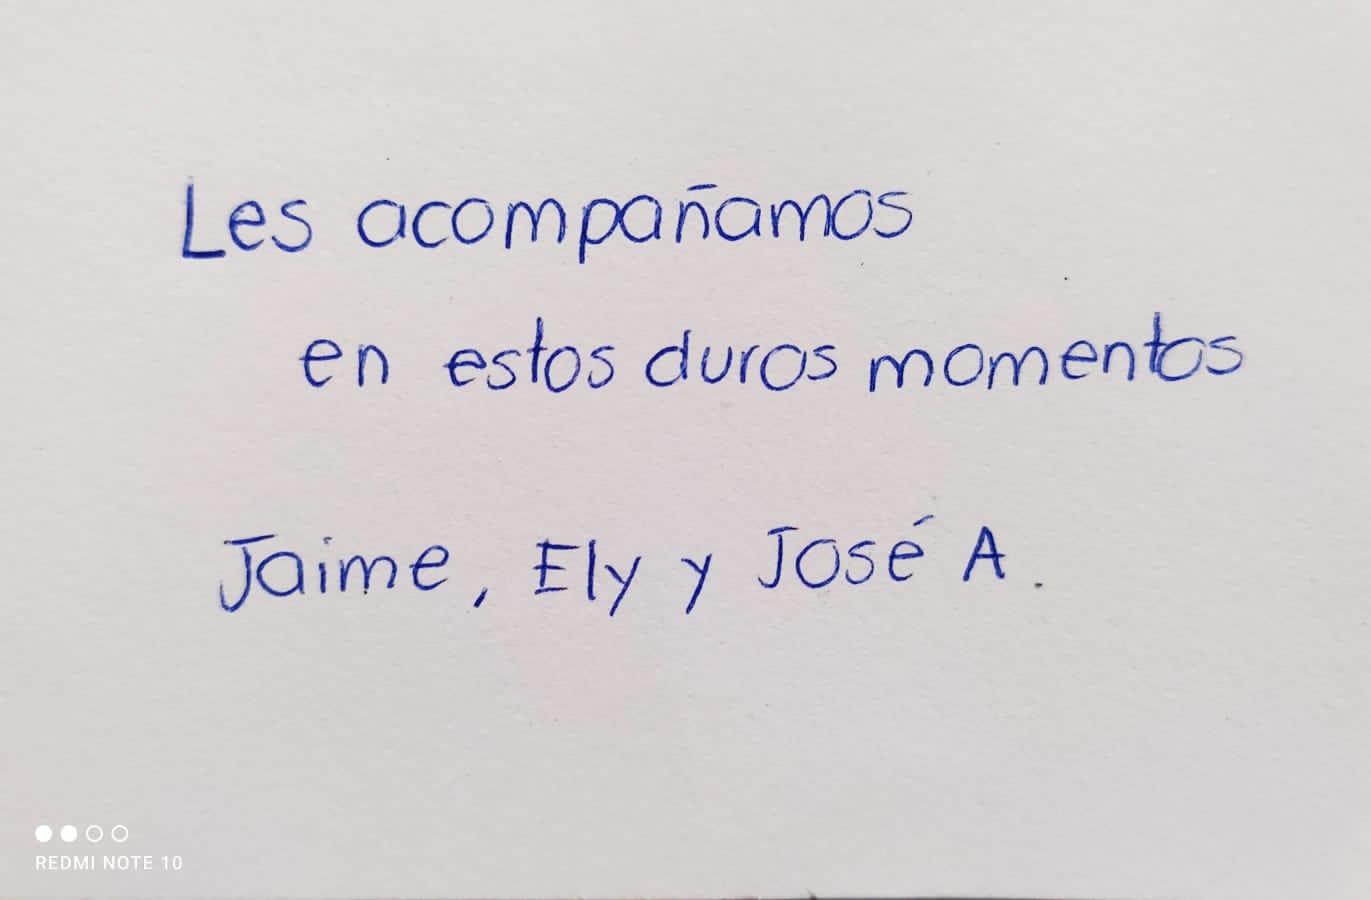 Les acompañamos
en estos duros momentos
Jaime, Ely y José A.
REDMI NOTE 10